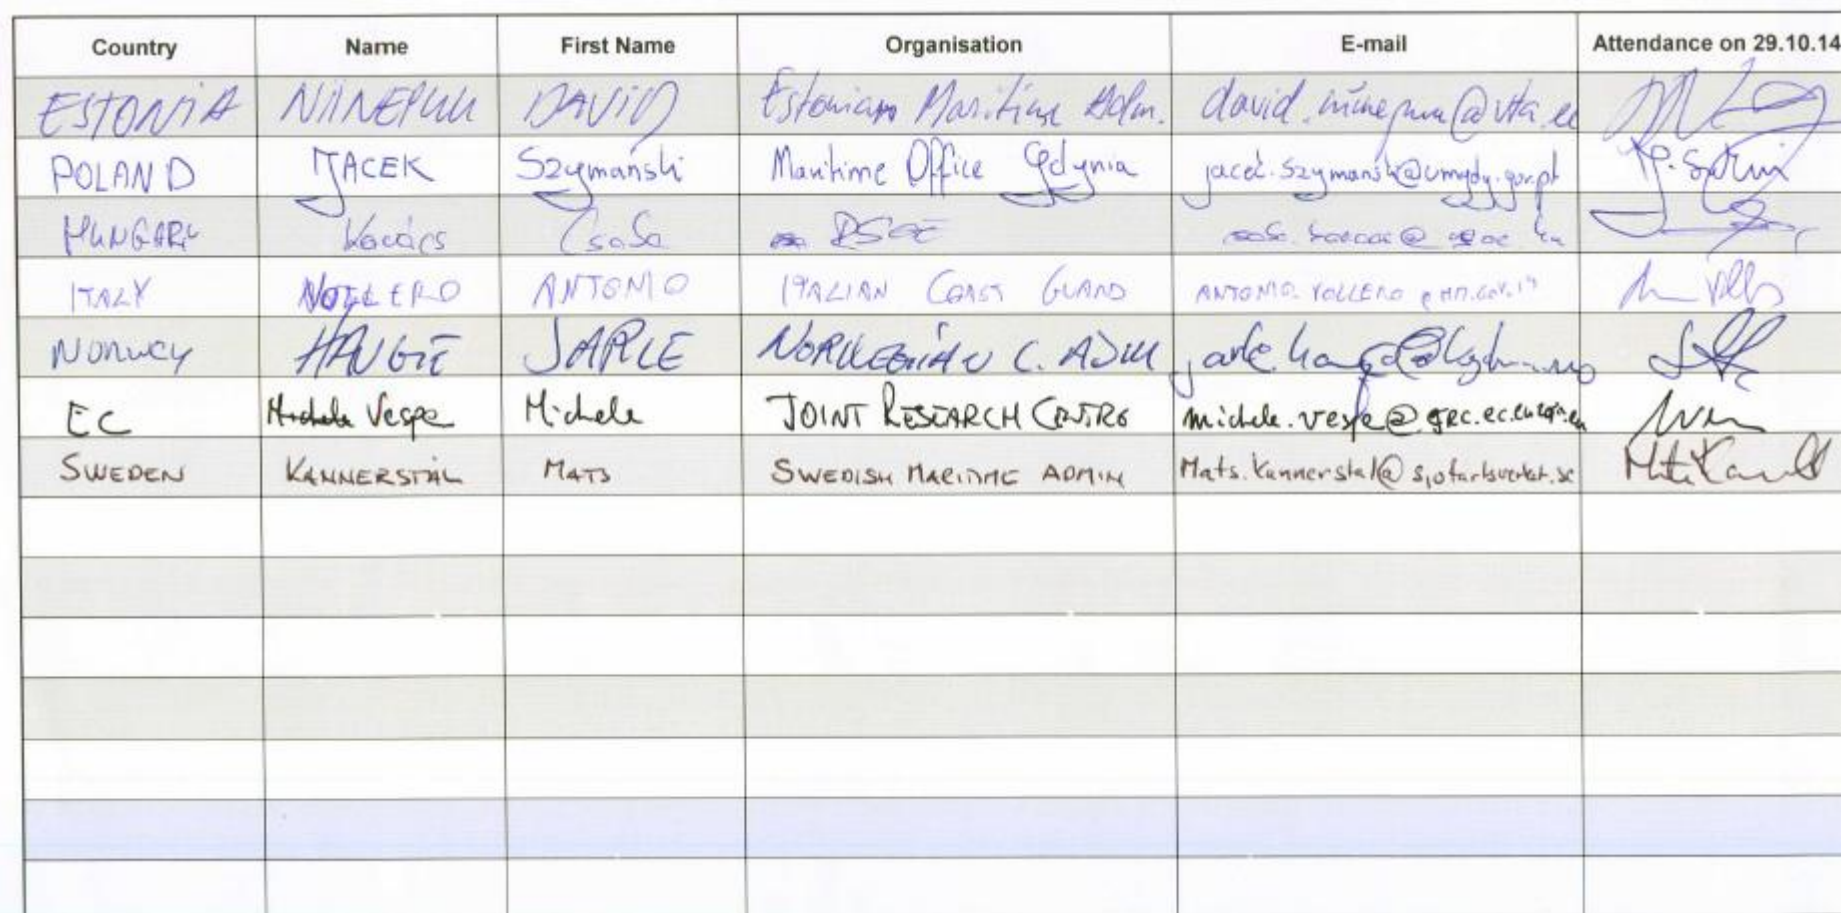 Country Name First Name Organisation E-mail Attendance on 29.10.14
ESTONIA NIINEPUU DAVID Estonian Maritime Adm.
POLAND JACEK Szymański Maritime Office Gdynia jacek.szymanski@umgdy.gov.pl
HUNGARY Kovács Csaba RSOE
ITALY VOLLERO ANTONIO ITALIAN COAST GUARD ANTONIO.VOLLERO@MIT.GOV.IT
NORWAY HAUGE JARLE NORWEGIAN C. ADM
EC Michele Vespe Michele JOINT RESEARCH CENTRE michele.vespe@jrc.ec.europa.eu
SWEDEN KANNERSTÅL MATS SWEDISH MARITIME ADMIN Mats.Kannerstal@sjofartsverket.se